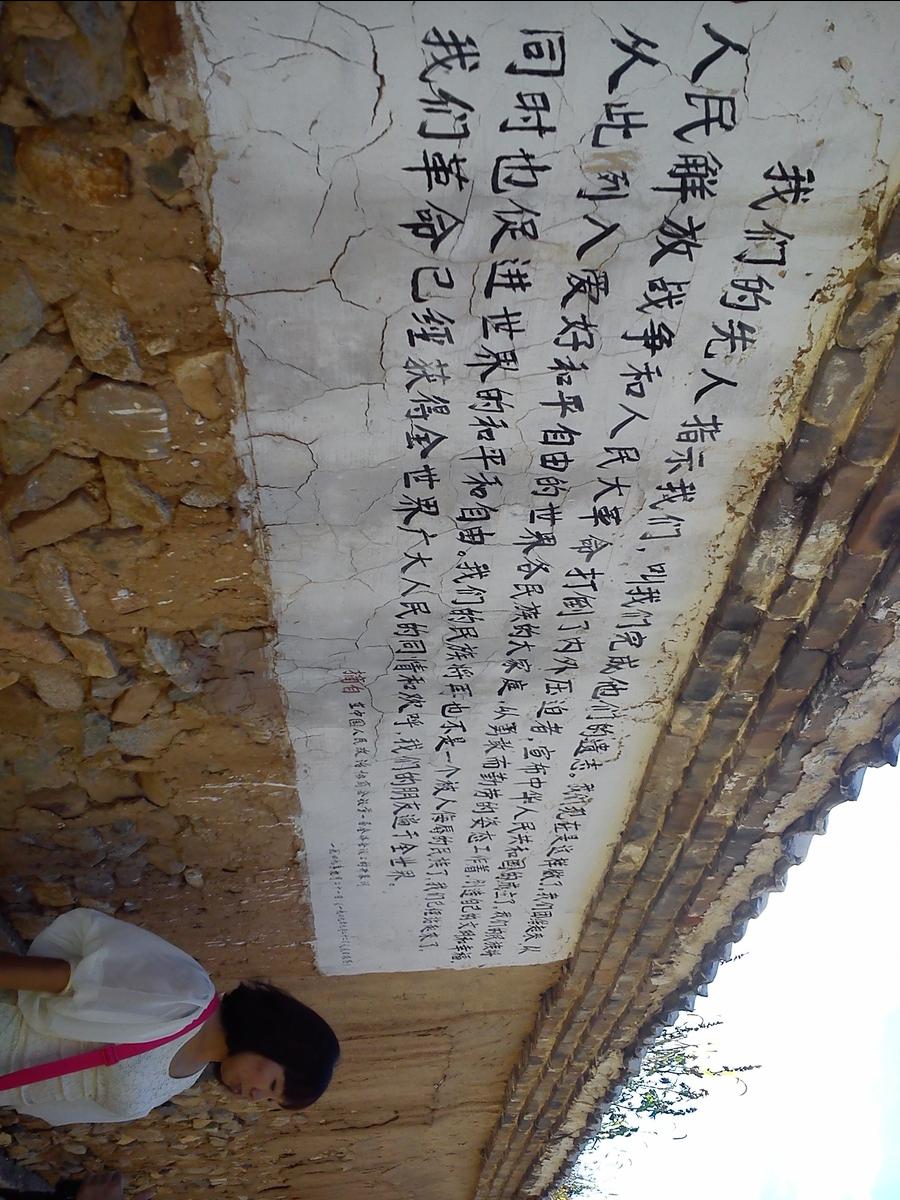 我们的先人指示我们，叫我们完成他们的遗志。我们现在是这样做了，我们团结起来，以
人民解放战争和人民大革命打倒了内外压迫者，宣布中华人民共和国的成立了，我们的民族将
从此例入爱好和平自由的世界各民族的大家庭，以勇敢而勤劳的姿态工作着，创造自己的文明和幸福，
同时也促进世界的和平和自由。我们的民族将再也不是一个被人侮辱的民族了，我们已经站起来了。
我们革命已经获得全世界广大人民的同情和欢呼，我们的朋友遍于全世界。
摘自 在中国人民政治协商会议第一届全体会议上的开幕词